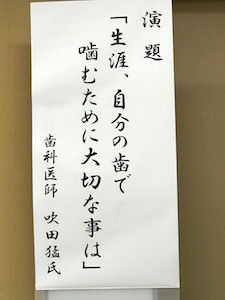 演題
「生涯、自分の歯で
噛むために大切な事は」
歯科医師 吹田猛氏